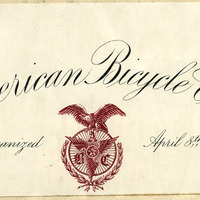 erican Bicycle C
anized April 8th